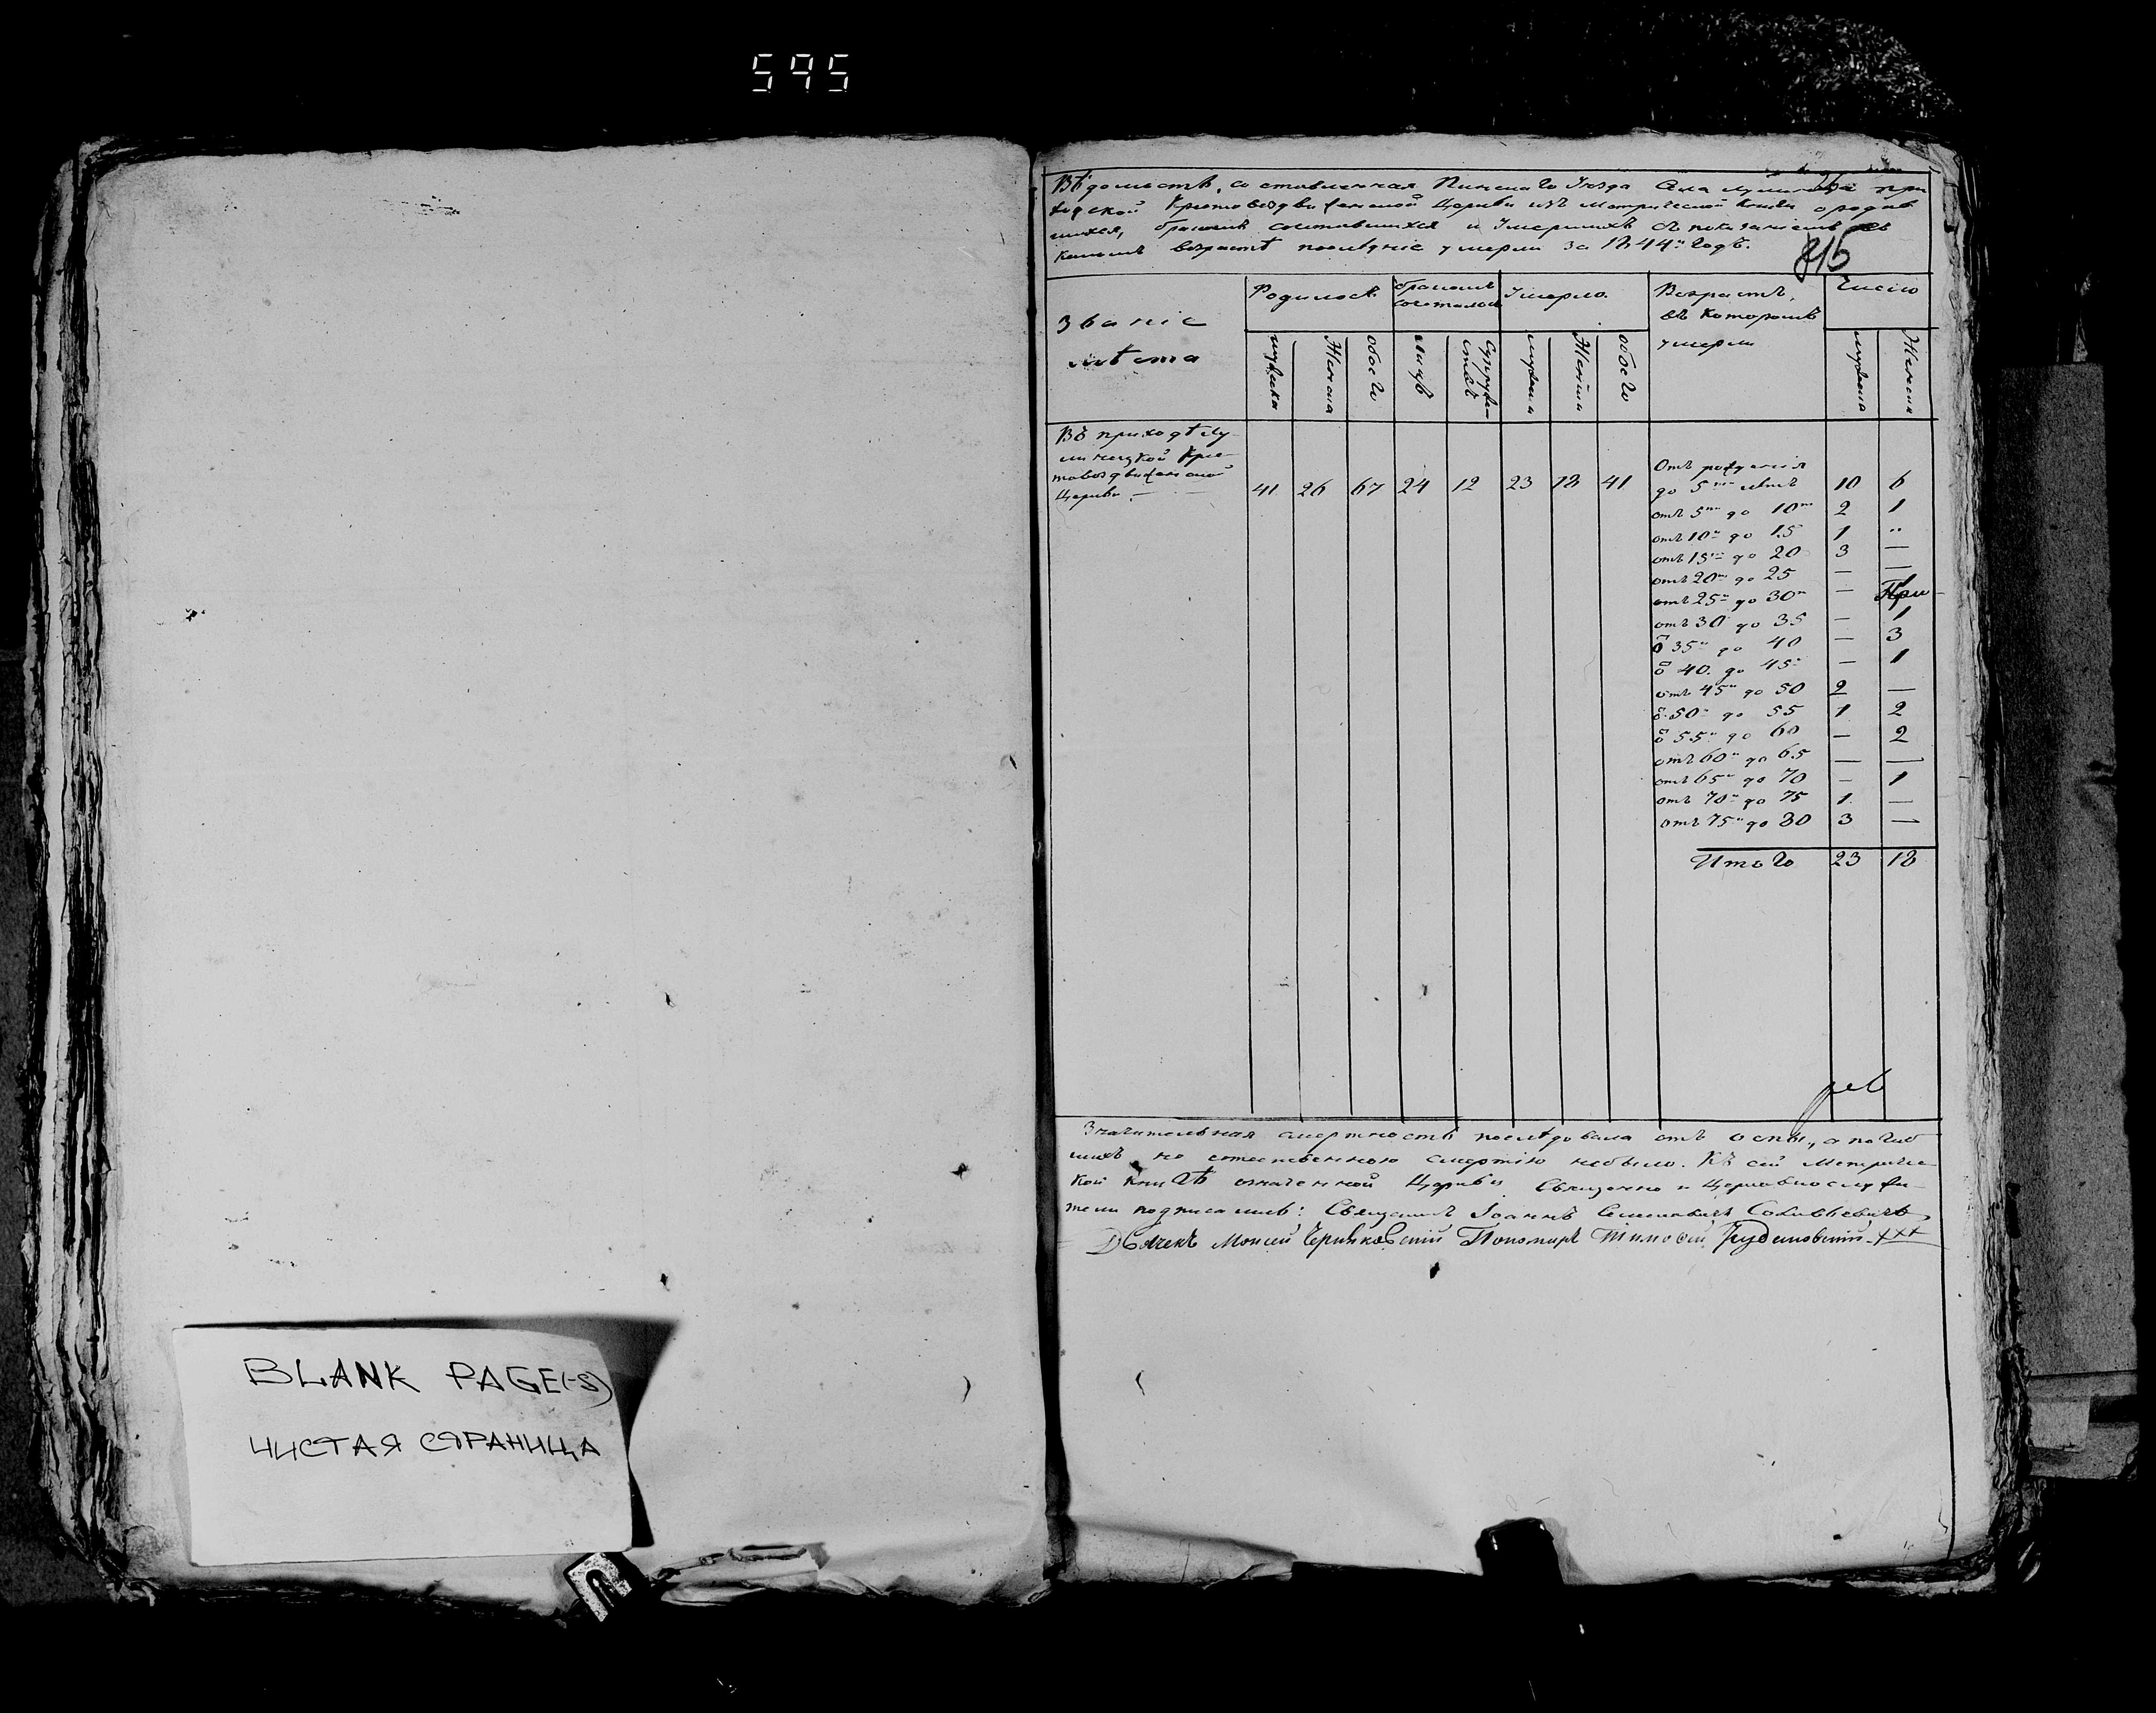 595
BLANK PAGE(-S)
ЧИСТАЯ СТРАНИЦА
Вѣдомость, составленная Пинскаго Уѣзда Села при
ходской Крестовоздвиженской Церкви изъ Метрической Книги о родив
шихся, бракомъ сочетавшихся и Умершихъ съ показаніемъ въ
какомъ возрастѣ послѣдніе умерли за 1844й Годъ.
815
Званіе
мѣста
Родилось
бракомъ
сочеталось
Умерло.
Возрастъ,
въ которомъ
умерли
Число
мужска
Женска
обоего
лицъ
Супруже-
ствъ
мужска
Женска
обоего
мужска
Женска
Въ приходѣ Лу-
нинецкой Кре-
стовоздвиженской
Церкви. — 41 26 67 24 12 23 18 41
Отъ рожденія
до 5ти лѣтъ 10 6
отъ 5ти до 10ти 2 1
отъ 10ти до 15 1 "
отъ 15ти до 20 3 —
отъ 20ти до 25 — —
отъ 25ти до 30ти — При-
отъ 30 до 35 — 1
35ти до 40 — 3
40 до 45 — 1
отъ 45ти до 50 2 —
50 до 55 1 2
55ти до 60 — 2
отъ 60ти до 65 — —
отъ 65ти до 70 — 1
отъ 70ти до 75 1 —
отъ 75ти до 80 3 —
Итого 23 18
Значительная смертность послѣдовала отъ оспы, а погиб
шихъ не естественною смертію небыло. Къ сей Метричес
кой книгѣ означенной Церкви Священно и Церковнослужи-
тели подписались: Священникъ Іоаннъ
Дьячекъ Моисей Пономарь Тимофей +++